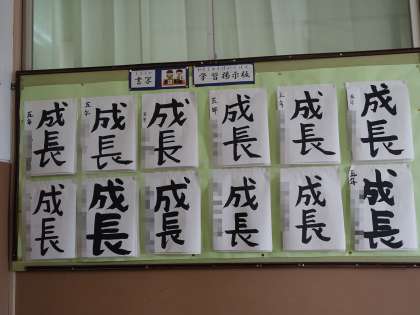 書写
学習掲示板
成長
五年
成長
五年
成長
成長
五年
成長
五年
成長
成長
成長
成長
成長
成長
成長
五年